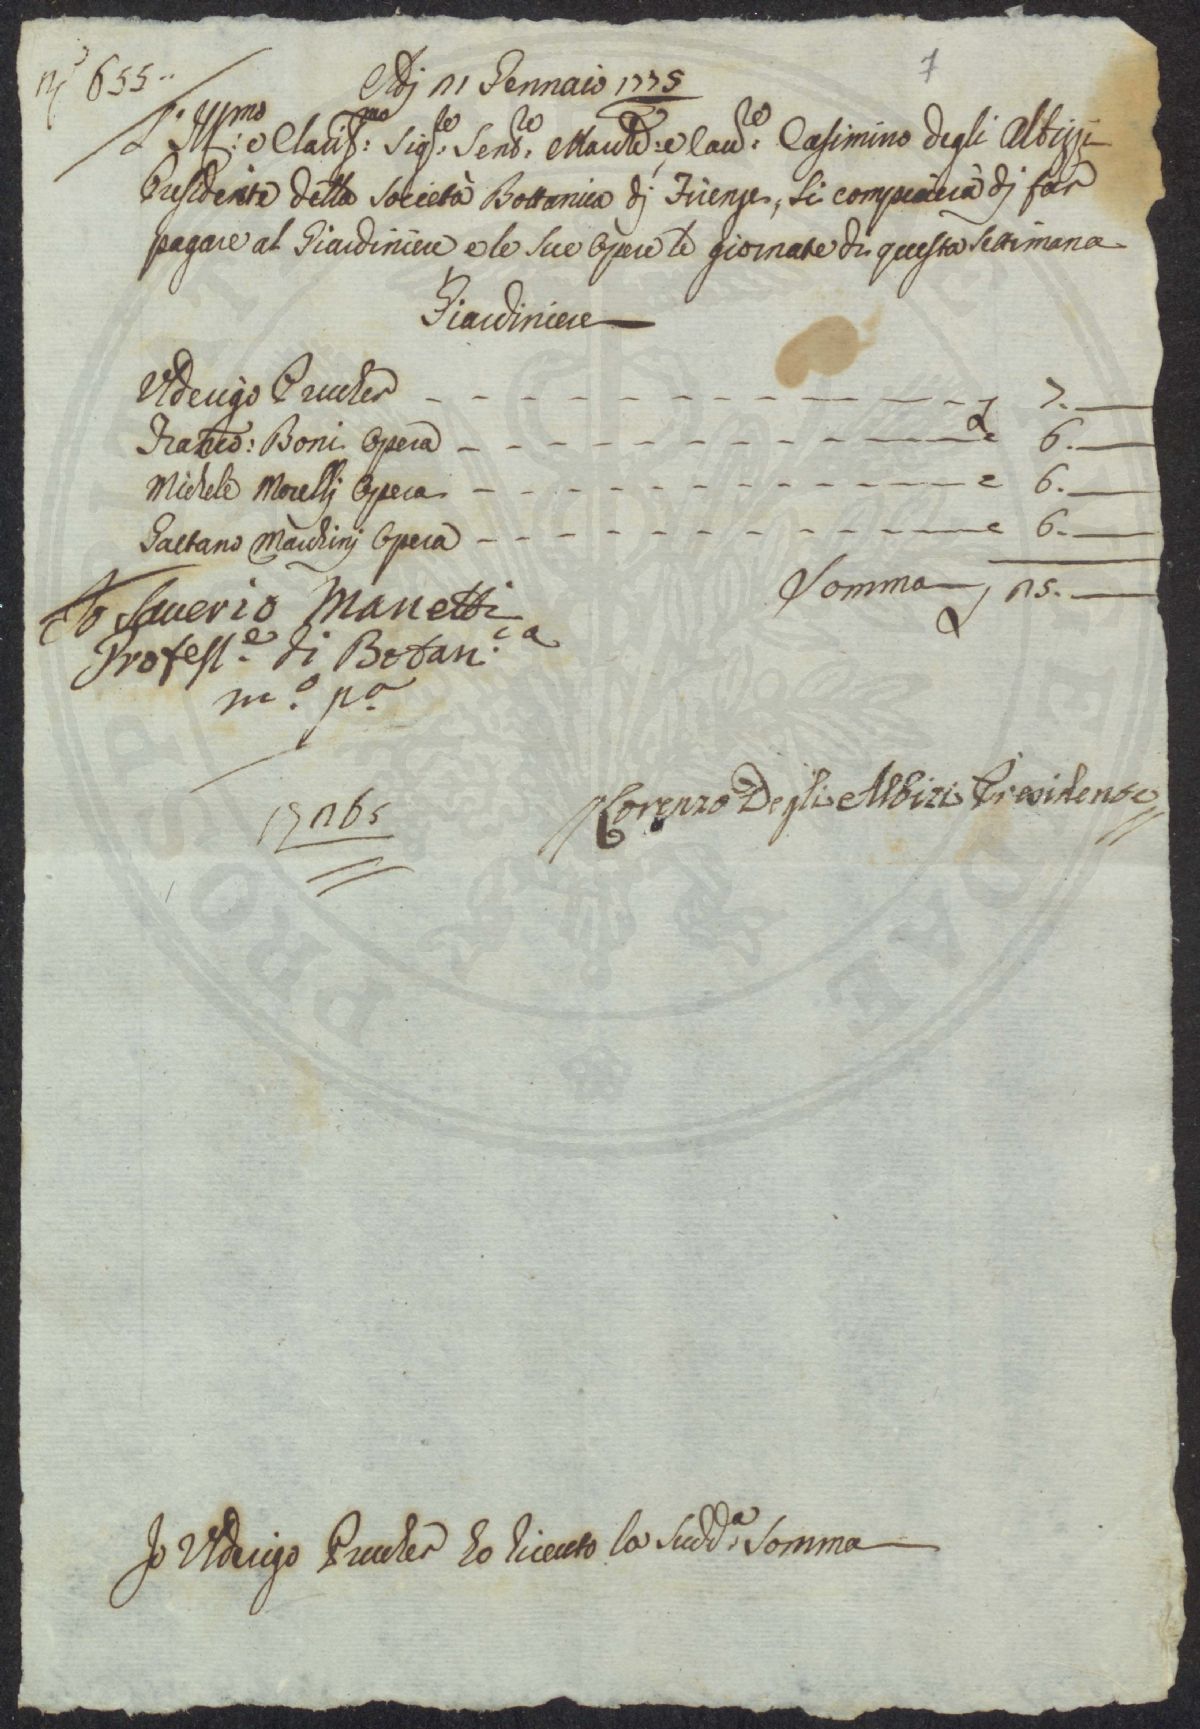 N.° 655..
7
Adj 21 Gennaio 1775
L' Ill:mo e Claris:mo Sig:re Sen:re March:e e Cav:re Casimirro degli Albizzi
Presidente della Società Bottanica dj Firenze, Si compiacerà dj far
pagare al Giardiniere e le Sue Opere le giornate di questa Settimana
Giardiniere
Uderigo Prucker 7.
Franco: Boni Opera 6.
Michele Morellj Opera 6.
Gaetano Marchinj Opera 6.
Somma 25.
Io Saverio Manetti
Profess.e di Botan.ca
m.o p.a
Lorenzo Degli Albizi Presidente
Jo Uderigo Prucker ho riceuto la Sudd.a Somma